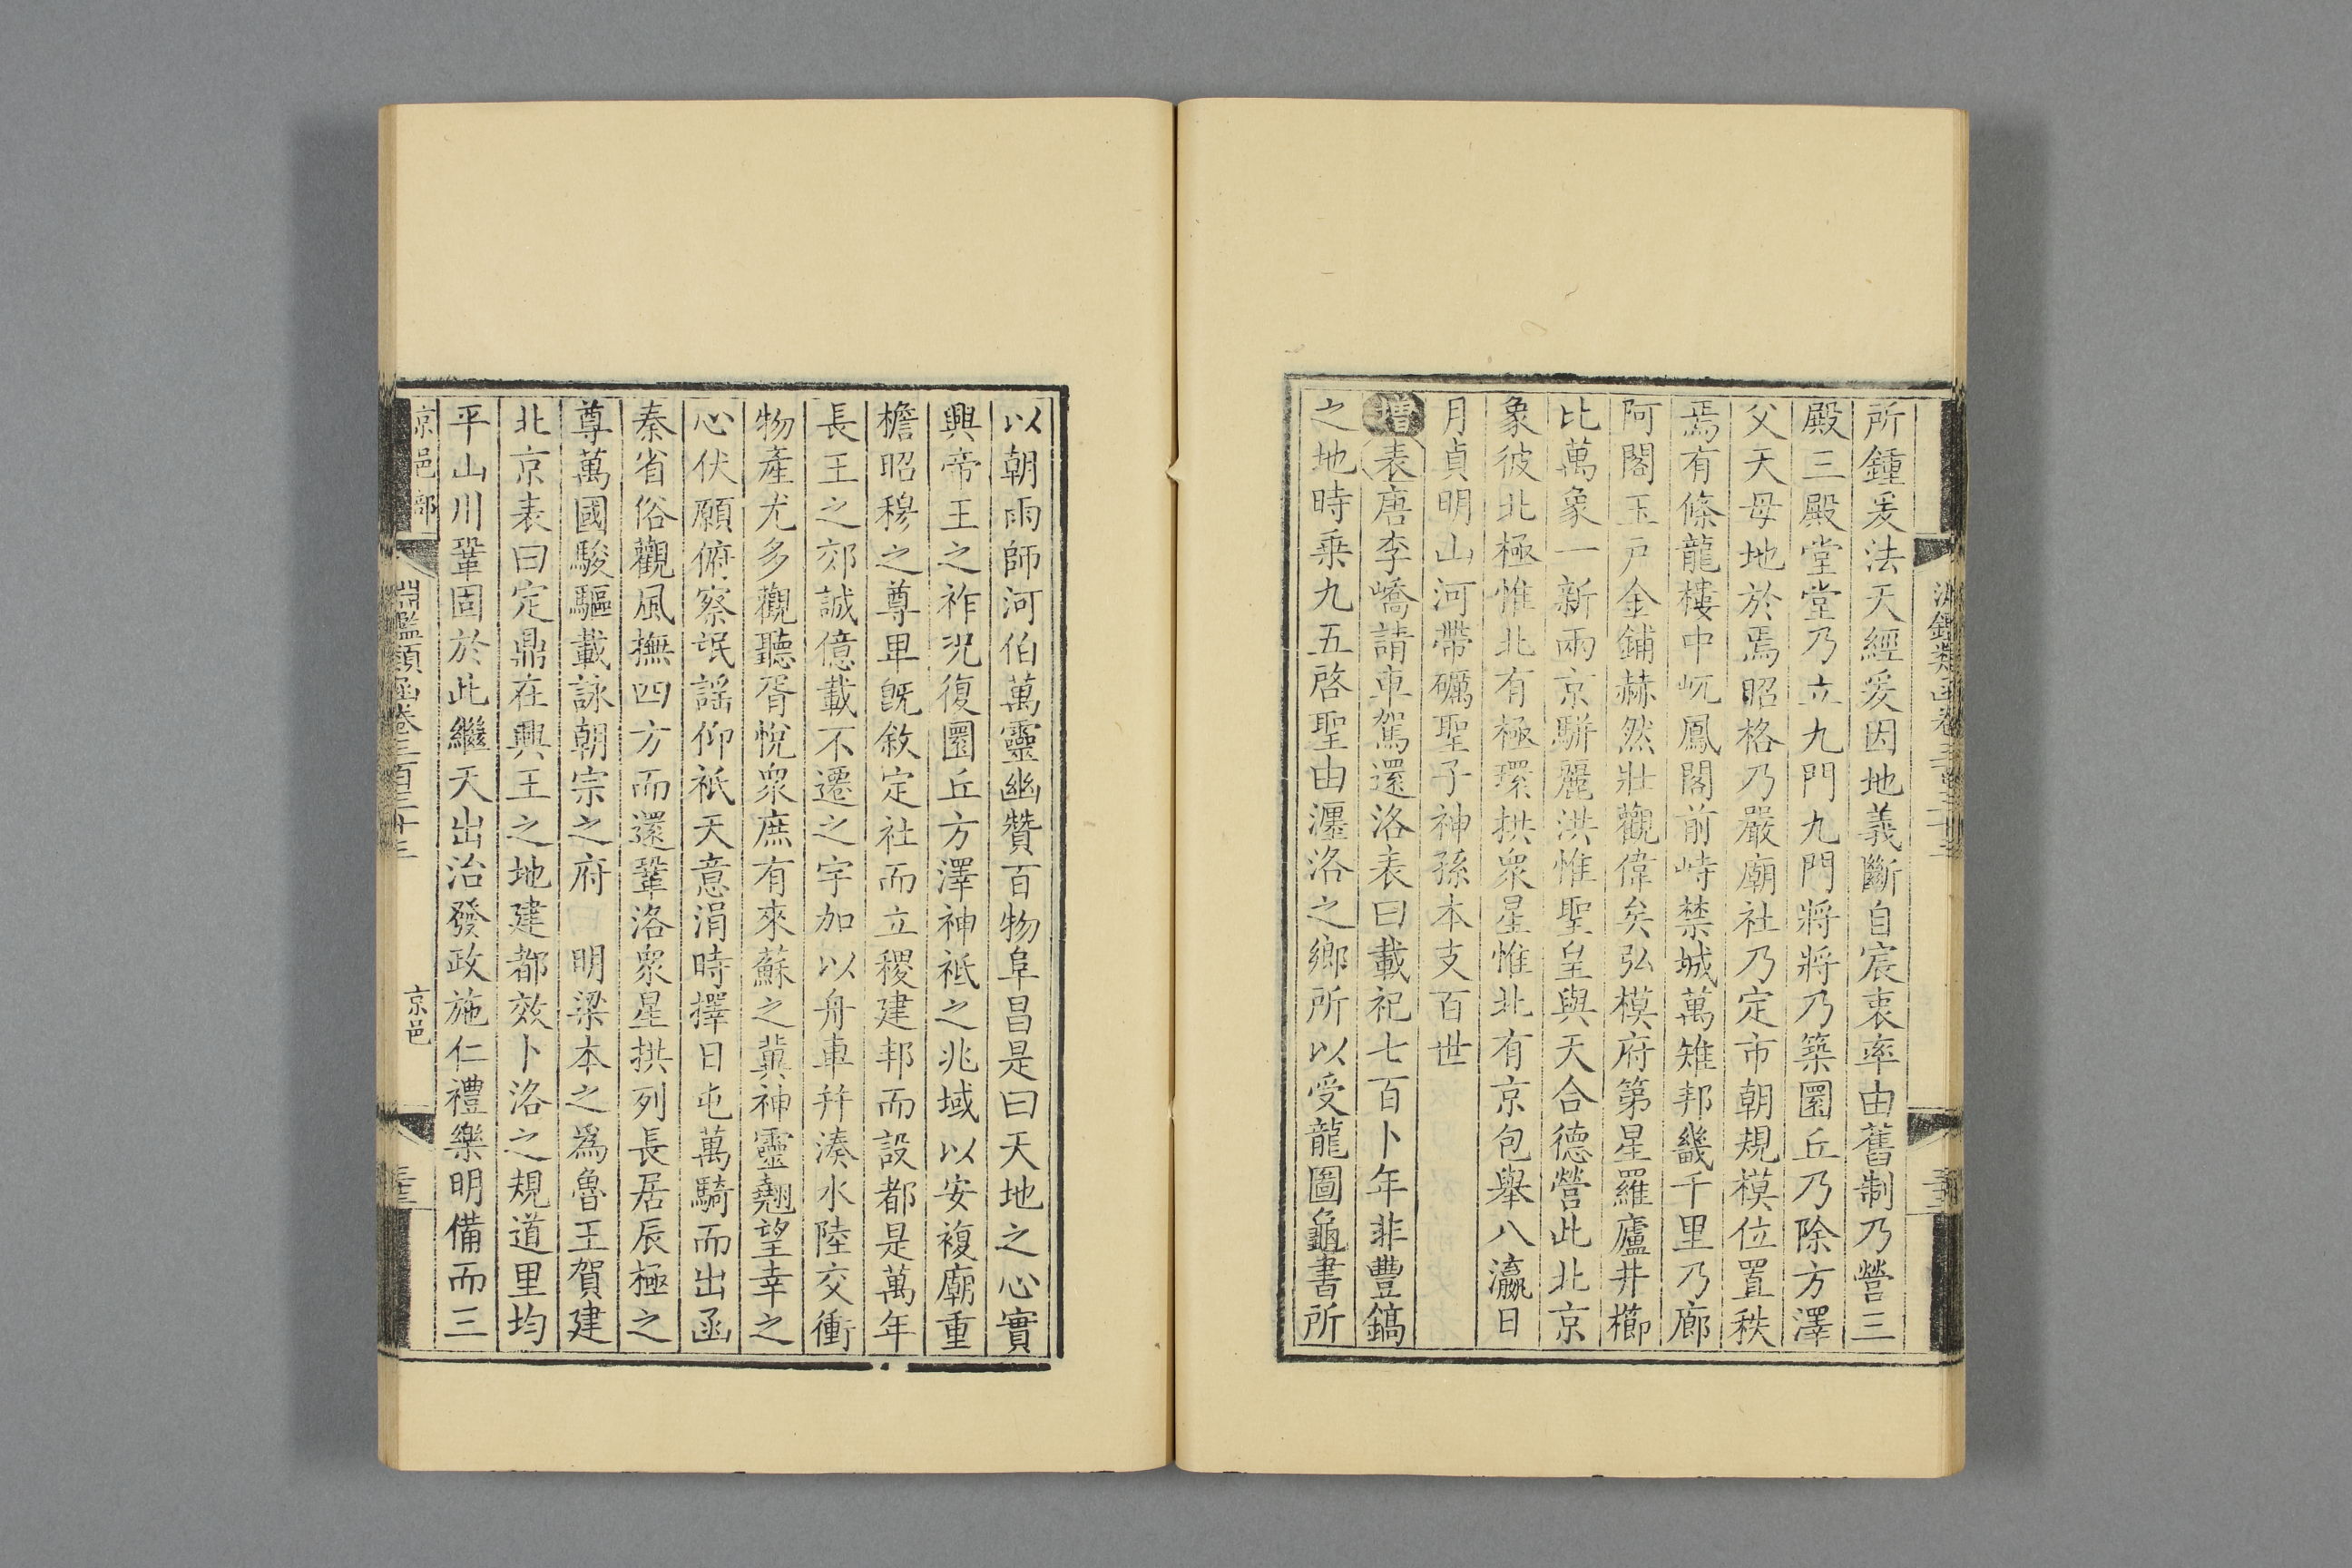 所鍾爰法天經爰因地義斷自宸衷率由舊制乃營三
殿三殿堂堂乃立九門九門將將乃築圜丘乃除方澤
父天母地於焉昭格乃嚴廟社乃定市朝規模位置秩
焉有條龍樓中屹鳳閣前峙禁城萬雉邦畿千里乃廊
阿閣玉戸金鋪赫然壯觀偉矣弘模府第星羅廬井櫛
比萬象一新兩京駢麗洪惟聖皇與天合德營此北京
象彼北極惟北有極環拱衆星惟北有京包舉八瀛日
月貞明山河帶礪聖子神孫本支百世
增表唐李嶠請車駕還洛表曰載祀七百卜年非豐鎬
之地時乘九五啓聖由瀍洛之鄉所以受龍圖龜書所
以朝雨師河伯萬靈幽贊百物阜昌是曰天地之心實
興帝王之祚況復圜丘方澤神祗之兆域以安複廟重
檐昭穆之尊卑旣敘定社而立稷建邦而設都是萬年
長王之郊誠億載不遷之宇加以舟車幷湊水陸交衝
物產尤多觀聽胥悅衆庶有來蘇之冀神靈翹望幸之
心伏願俯察氓謡仰祇天意涓時擇日屯萬騎而出函
秦省俗觀風撫四方而還鞏洛衆星拱列長居辰極之
尊萬國駿驅載詠朝宗之府 明梁本之爲魯王賀建
北京表曰定鼎在興王之地建都效卜洛之規道里均
平山川鞏固於此繼天出治發政施仁禮樂明備而三
京邑部
淵鑑類函卷三百三十三
京邑